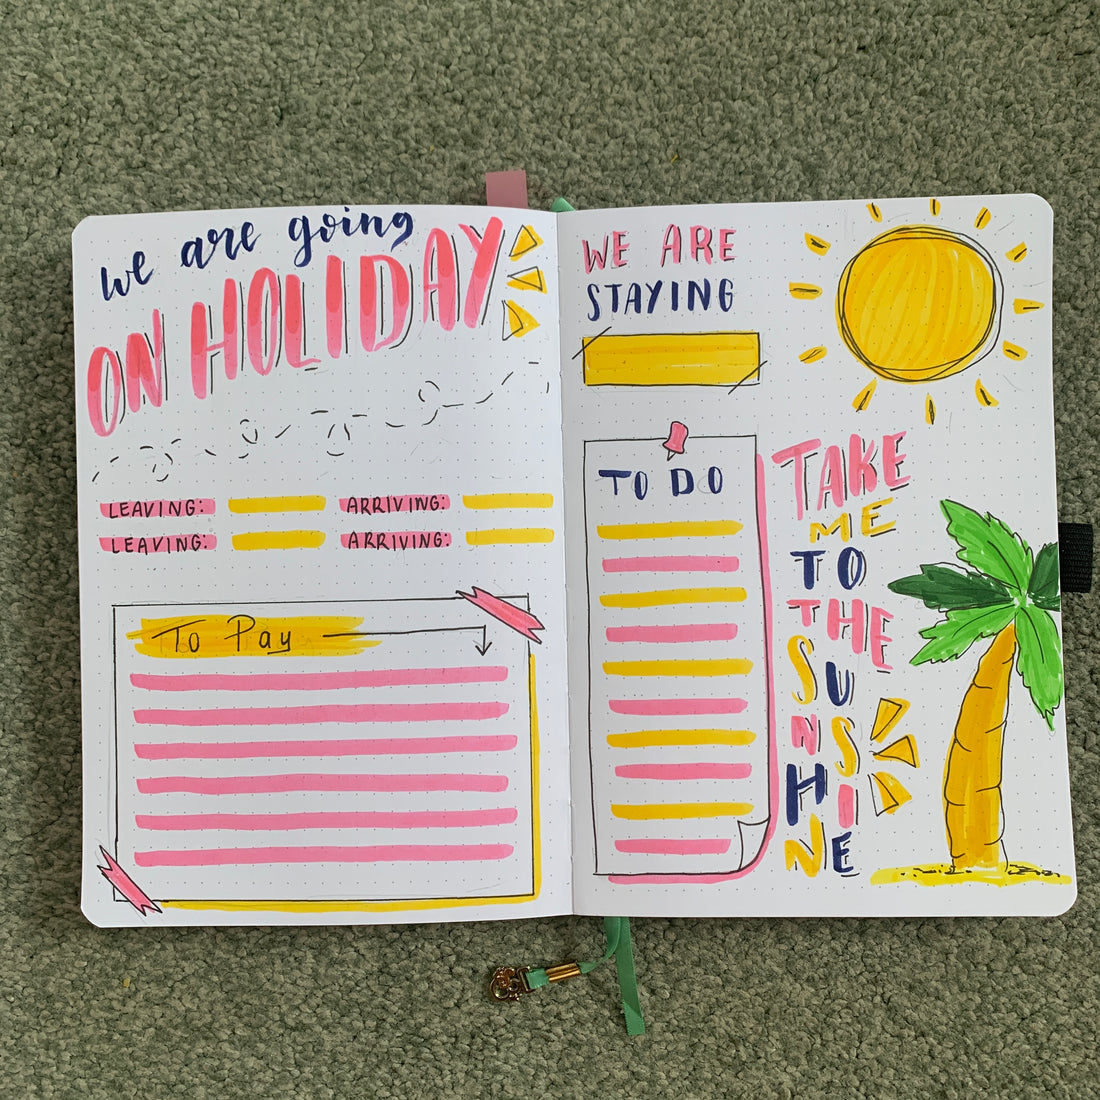 we are going
ON HOLIDAY
LEAVING: ARRIVING:
LEAVING: ARRIVING:
To Pay
WE ARE
STAYING
TO DO
TAKE
ME
TO
THE
SU
NS
HI
NE